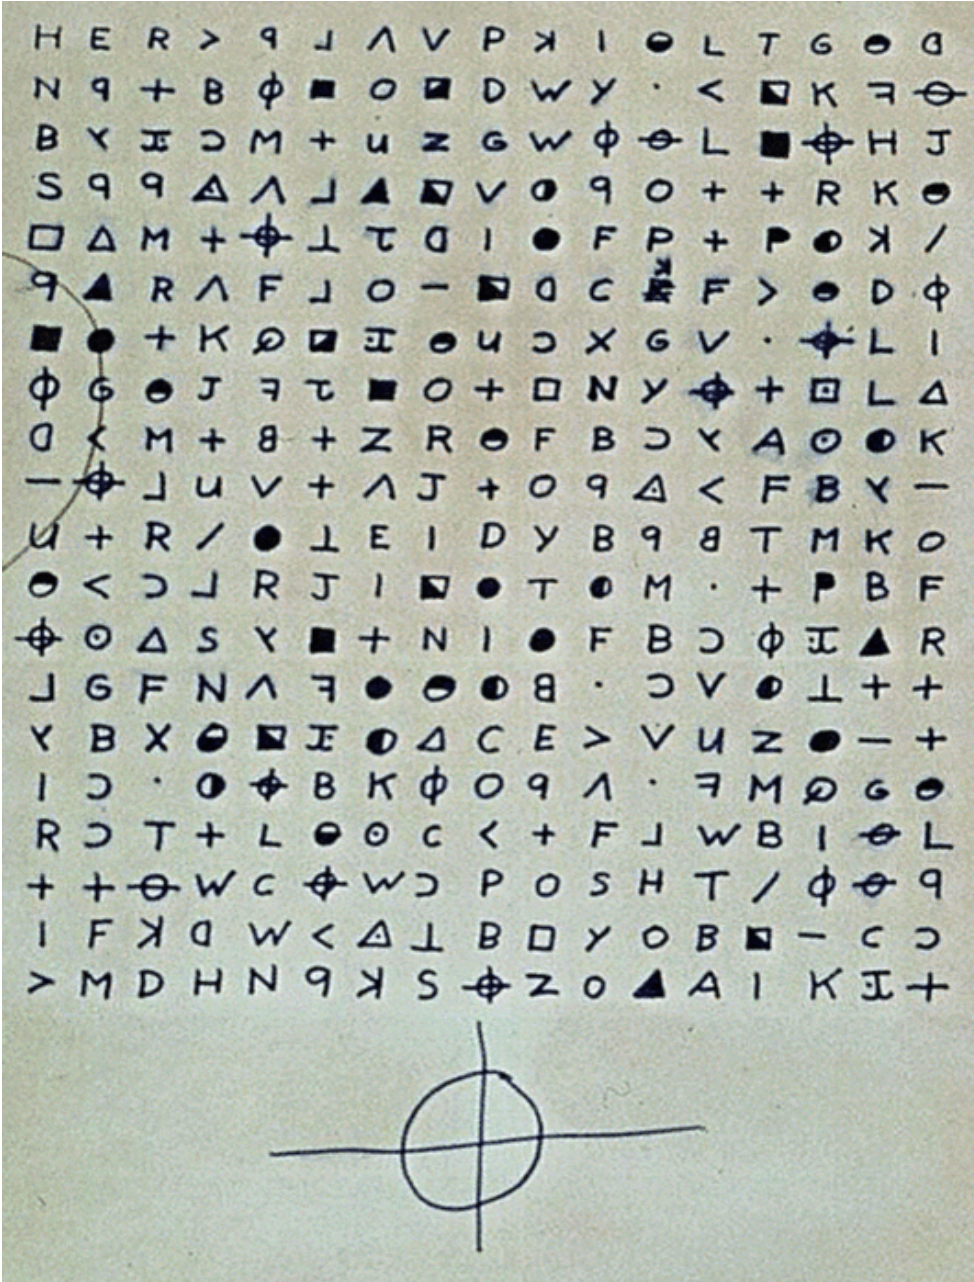 H E R > ꟼ ┘ Λ V P ꓘ I ◒ L T G ◒ ᗡ
N ꟼ + B ϕ ■ O ◪ D W Y · < ◣ K ꟻ ⊖
B ⅄ エ Ɔ M + u Z G W ϕ ⊖ L ■ ⌖ H J
S ꟼ ꟼ ◬ Λ ┘ ▲ ◪ V ◑ ꟼ O + + R K ◒
□ △ M + ⌖ ⊥ τ ᗡ I ● F P + P ◐ ꓘ /
ꟼ ▲ R Λ F ┘ O − ◣ ᗡ C K F > ◒ D ϕ
■ ● + K ∅ ◪ エ ◒ u Ɔ X G V · ⌖ L I
ϕ G ◒ J ꟻ τ ■ O + □ N Y ⌖ + ⊡ L △
ᗡ < M + ᗺ + Z R ◒ F B Ɔ ⅄ A ⊙ ◐ K
− ⌖ ┘ u V + Λ J + O ꟼ ◬ < F B ⅄ −
U + R / ● ⊥ E I D Y B ꟼ ᗺ T M K O
◒ < Ɔ ┘ R J I ◣ ● T ◐ M · + P B F
⌖ ⊙ △ S ⅄ ■ + N I ● F B Ɔ ϕ エ ▲ R
┘ G F N Λ ꟻ ● ◒ ◐ ᗺ · Ɔ V ◐ ⊥ + +
⅄ B X ◒ ◣ エ ◐ △ C E > V U Z ● − +
I Ɔ · ◑ ⌖ B K ϕ O ꟼ Λ · ꟻ M ∅ G ◒
R Ɔ T + L ◒ ⊙ C < + F ┘ W B I ⊖ L
+ + ⊖ W C ⌖ W Ɔ P O S H T / ϕ ⊖ ꟼ
I F ꓘ ᗡ W < ◬ ⊥ B □ Y O B ◣ − C Ɔ
> M D H N ꟼ ꓘ S ⌖ Z O ▲ A I K エ +